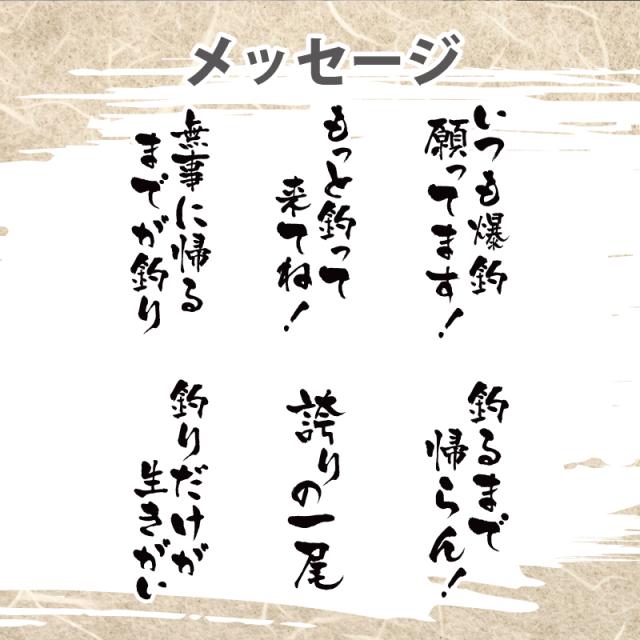 メッセージ
いつも爆釣
願ってます！
もっと釣って
来てね！
無事に帰る
までが釣り
釣るまで
帰らん！
誇りの一尾
釣りだけが
生きがい